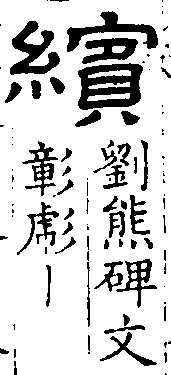 繽
劉熊碑文
彰彪丨